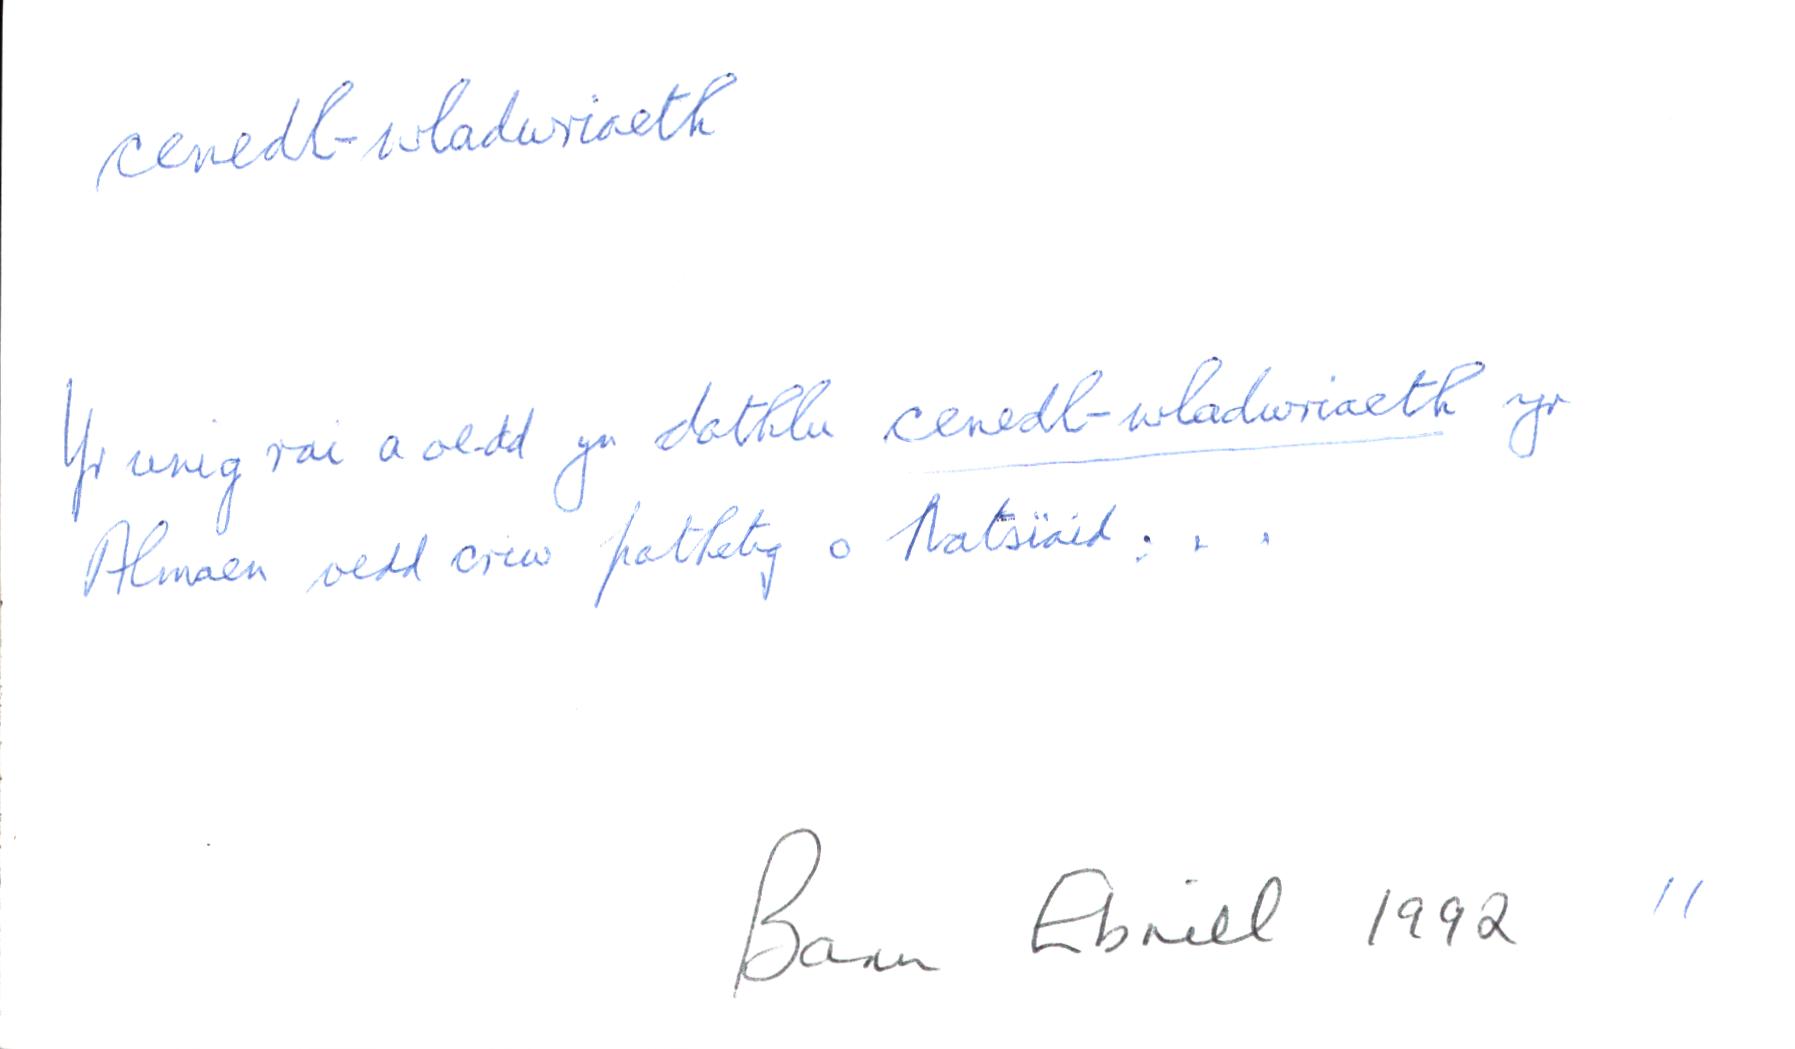 cenedl-wladwriaeth
Yr unig rai a oedd yn dathlu cenedl-wladwriaeth yr
Almaen oedd criw pathetig o Natsïaid . . .
Barn Ebrill 1992 11